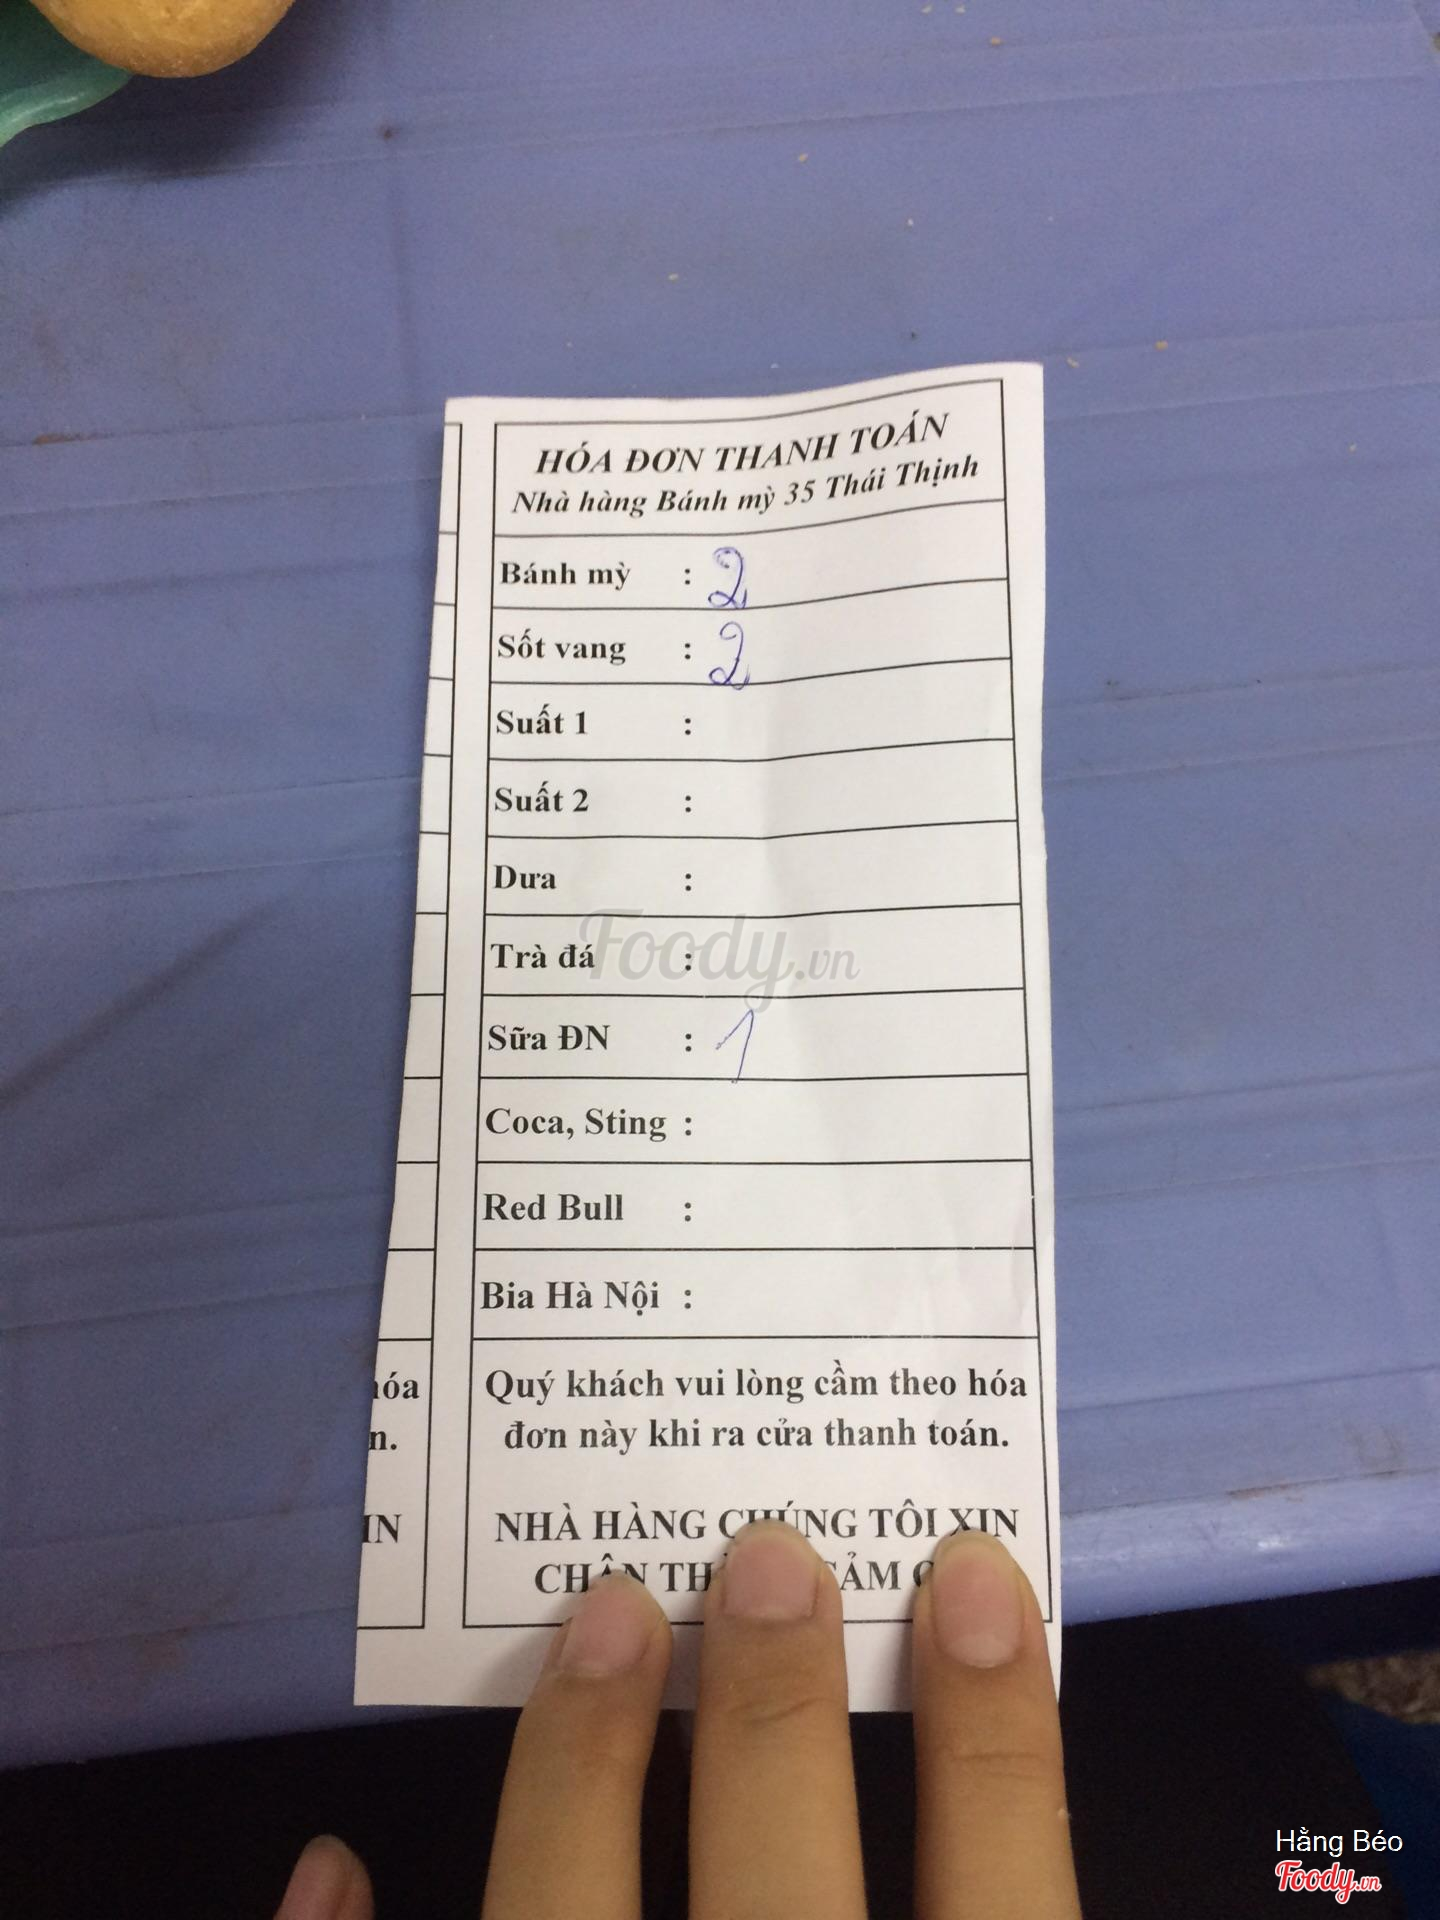 HÓA ĐƠN THANH TOÁN
Nhà hàng Bánh mỳ 35 Thái Thịnh
Bánh mỳ : 2
Sốt vang : 2
Suất 1 :
Suất 2 :
Dưa :
Trà đá :
Foody.vn
Sữa ĐN : 1
Coca, Sting :
Red Bull :
Bia Hà Nội :
Quý khách vui lòng cầm theo hóa
đơn này khi ra cửa thanh toán.
NHÀ HÀNG CHÚNG TÔI XIN
CHÂN
óa
n.
IN
Hằng Béo
Foody.vn